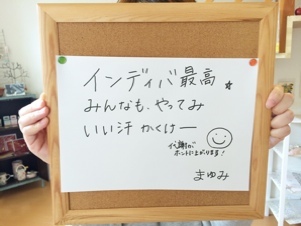 インディバ最高★
みんなも、やってみ
いい汗かくけー
代謝が
ホントに上がります！
まゆみ